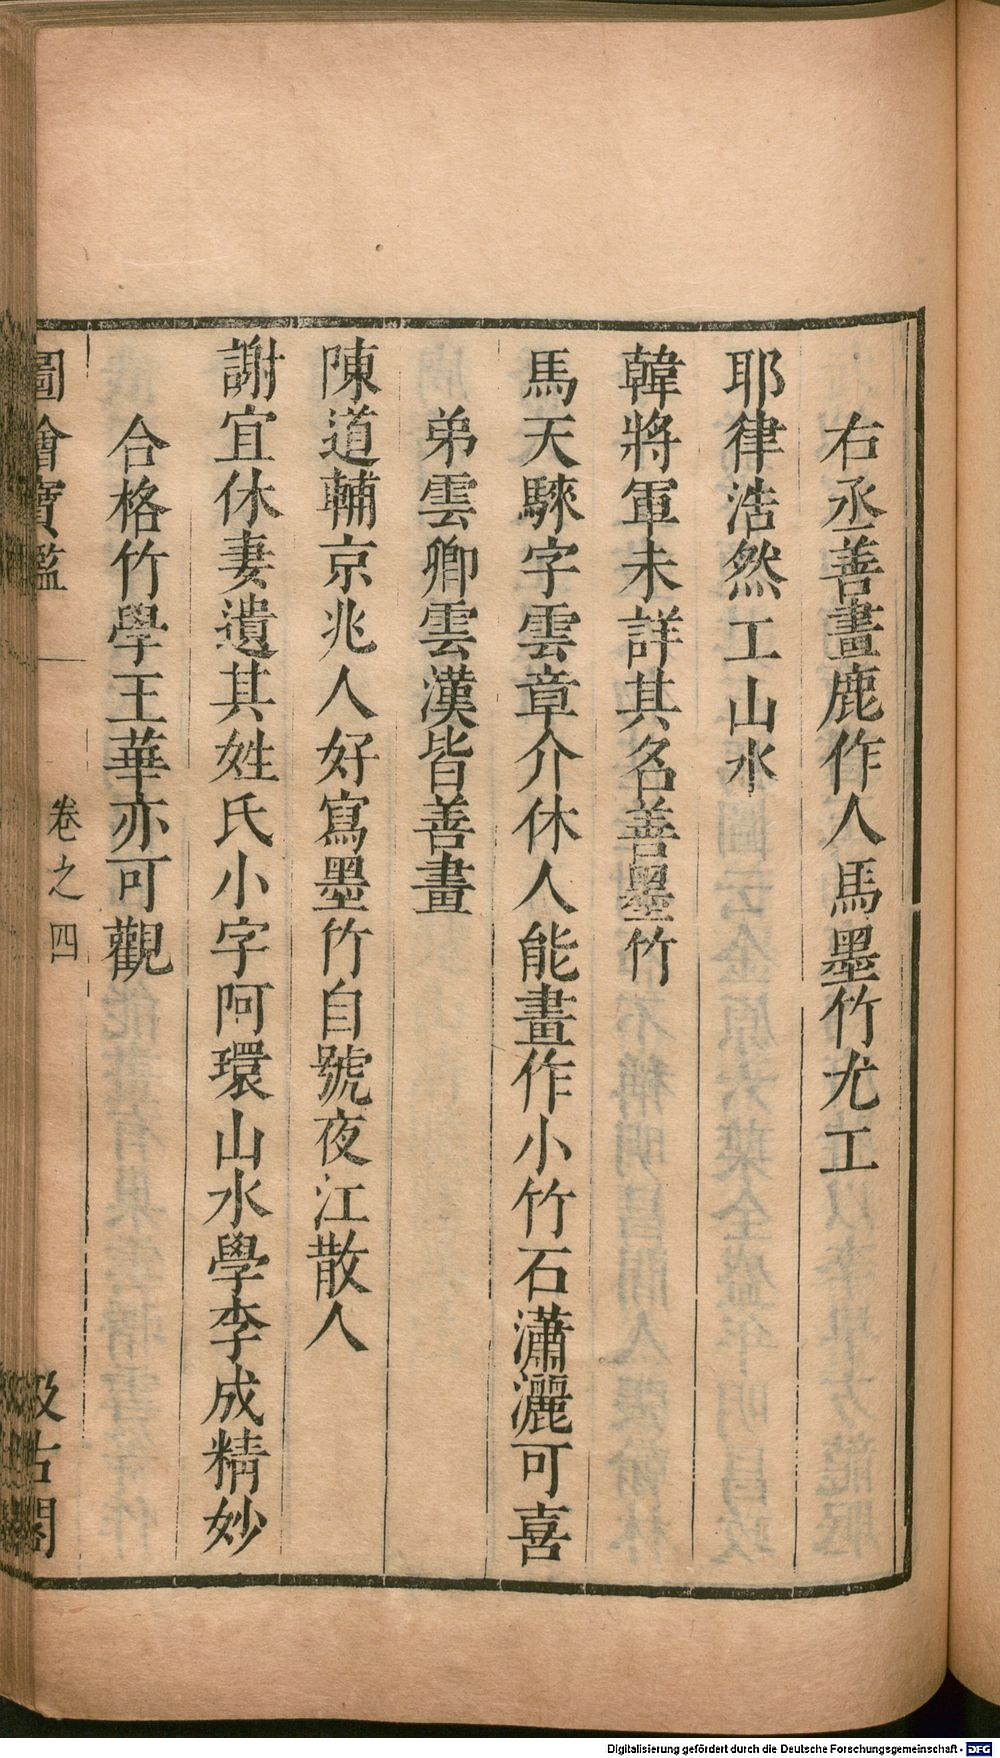 右丞善畫鹿作人馬墨竹尤工
耶律浩然工山水
韓將軍未詳其名善墨竹
馬天騋字雲章介休人能畫作小竹石瀟灑可喜
弟雲卿雲漢皆善畫
陳道輔京兆人好寫墨竹自號夜江散人
謝宜休妻遺其姓氏小字阿環山水學李成精妙
合格竹學王華亦可觀
圖會寶鑑
卷之四
汲古閣
Digitalisierung gefördert durch die Deutsche Forschungsgemeinschaft - DFG